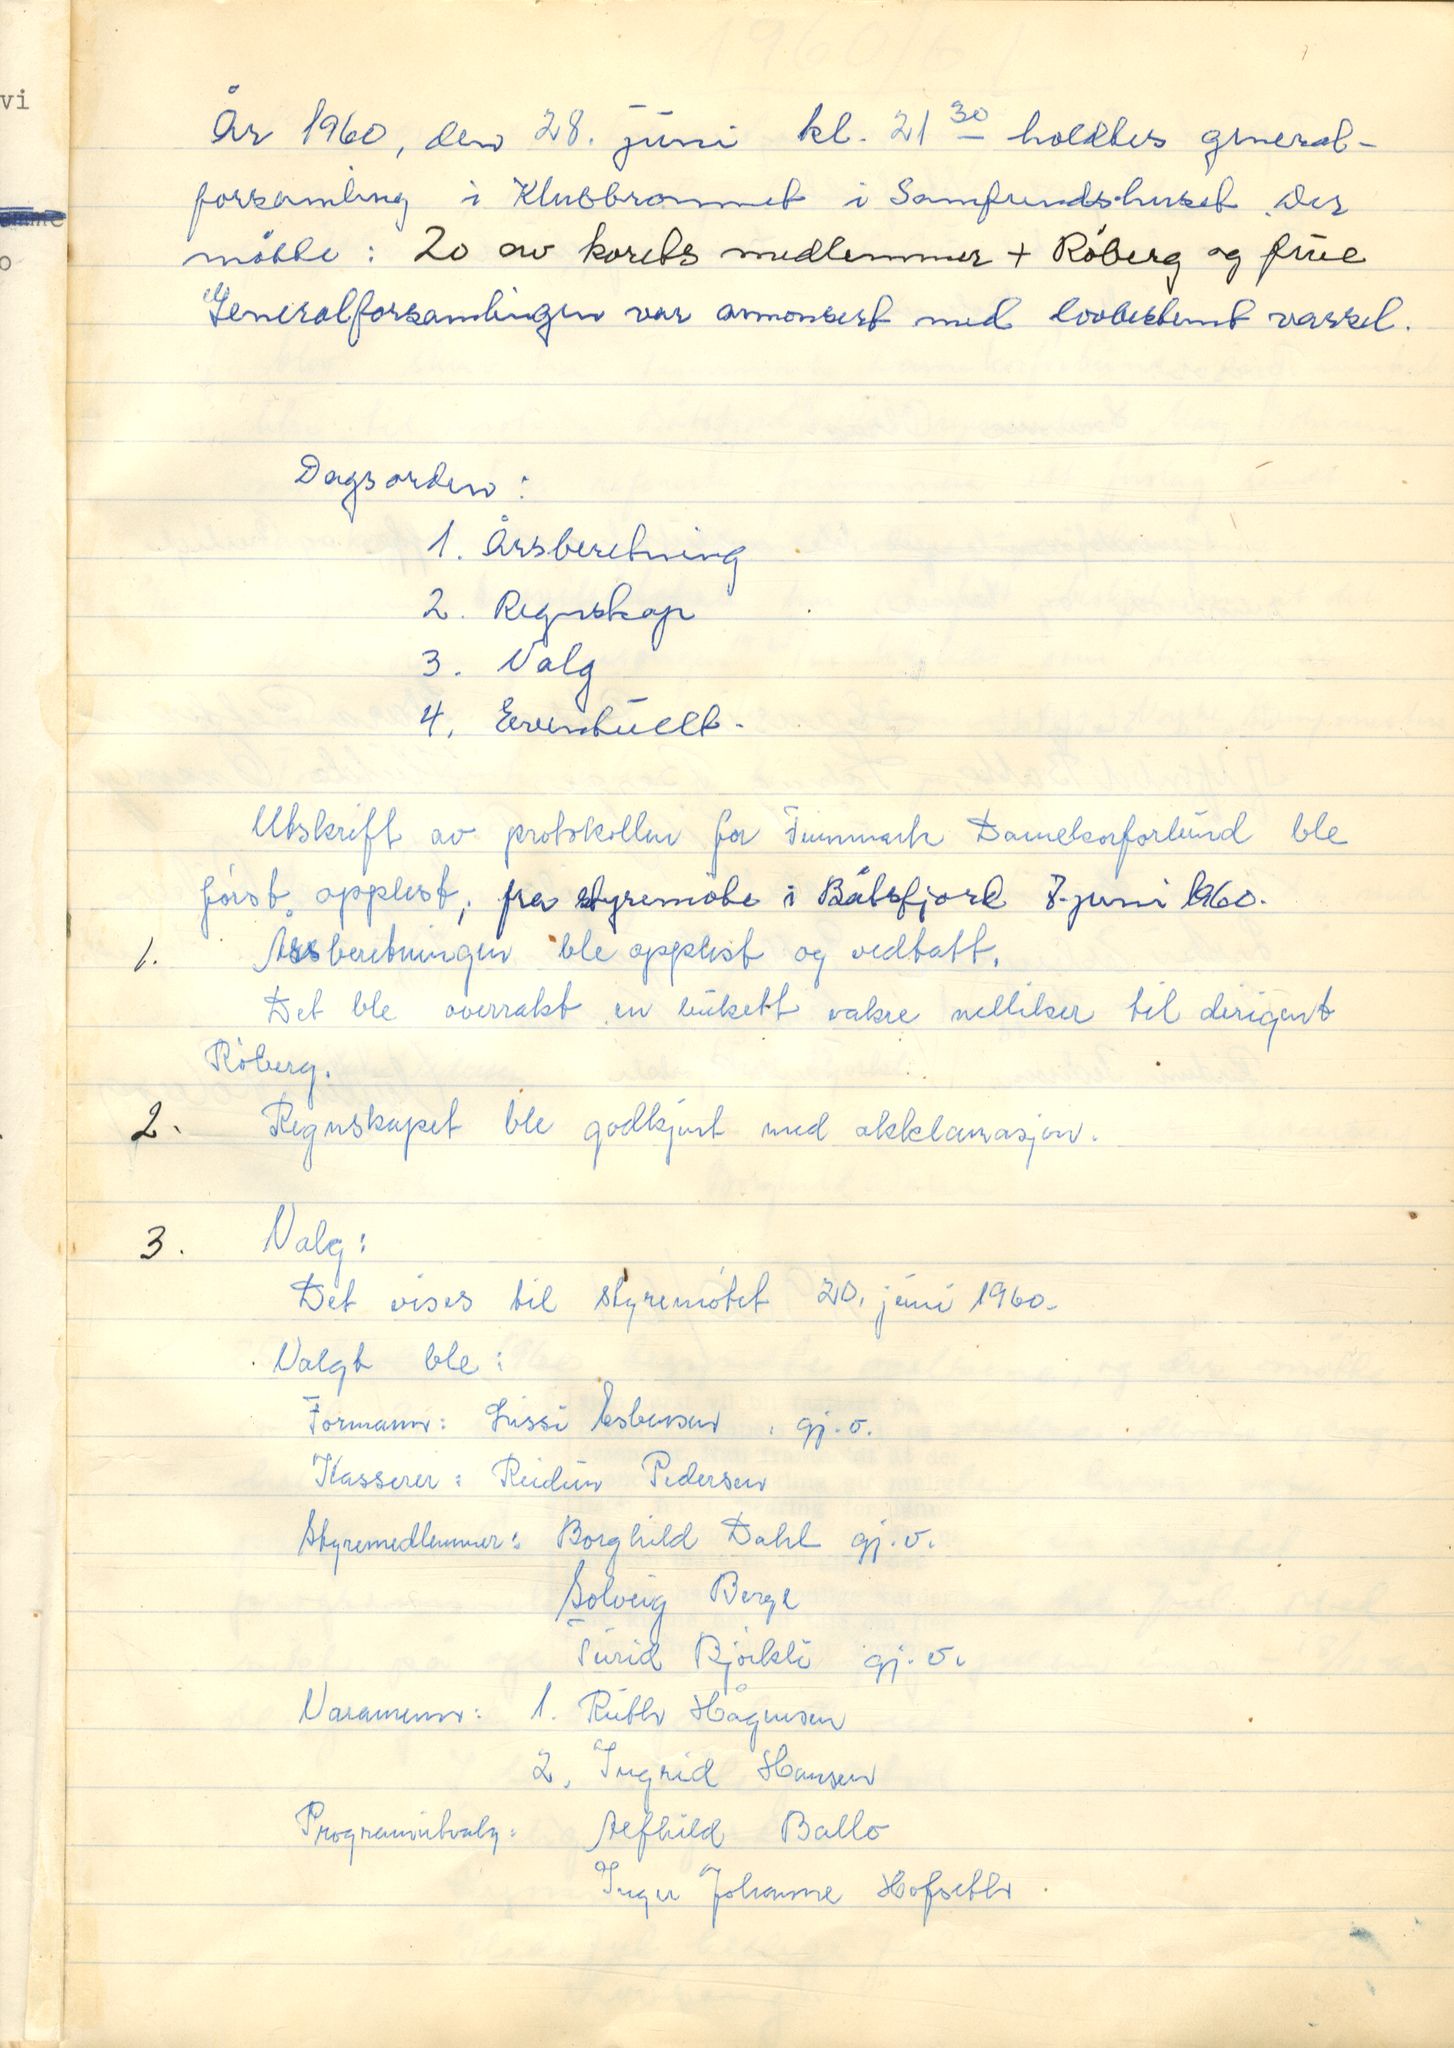 År 1960, den 28. juni kl. 21 30 holdtes general-
forsamling i Klubbrommet i Samfundshuset. Der
møtte: 20 av korets medlemmer + Røberg og frue
Generalforsamlingen var annonsert med lovbestemt varsel.
Dagsorden:
1. Årsberetning
2. Regnskap
3. Valg
4. Eventuelt.
Utskrift av protokollen for Finnmark Damekorforbund ble
først opplest, fra styremøte i Båtsfjord 7. juni 1960.
1. Årsberetningen ble opplest og vedtatt.
Det ble overrakt en bukett vakre nelliker til dirigent
Røberg.
2. Regnskapet ble godkjent med akklamasjon.
3. Valg:
Det vises til styremøtet 20. juni 1960.
Valgt ble:
Formann: Lissi Esbensen, gj.v.
Kasserer: Reidun Pedersen
Styremedlemmer: Borghild Dahl gj.v.
Solveig Berge
Turid Bjørkli gj.v.
Varamenn: 1. Ruth Hågensen
2. Ingrid Hansen
Programutvalg: Alfhild Ballo
Inger Johanne Hofseth
vi
o